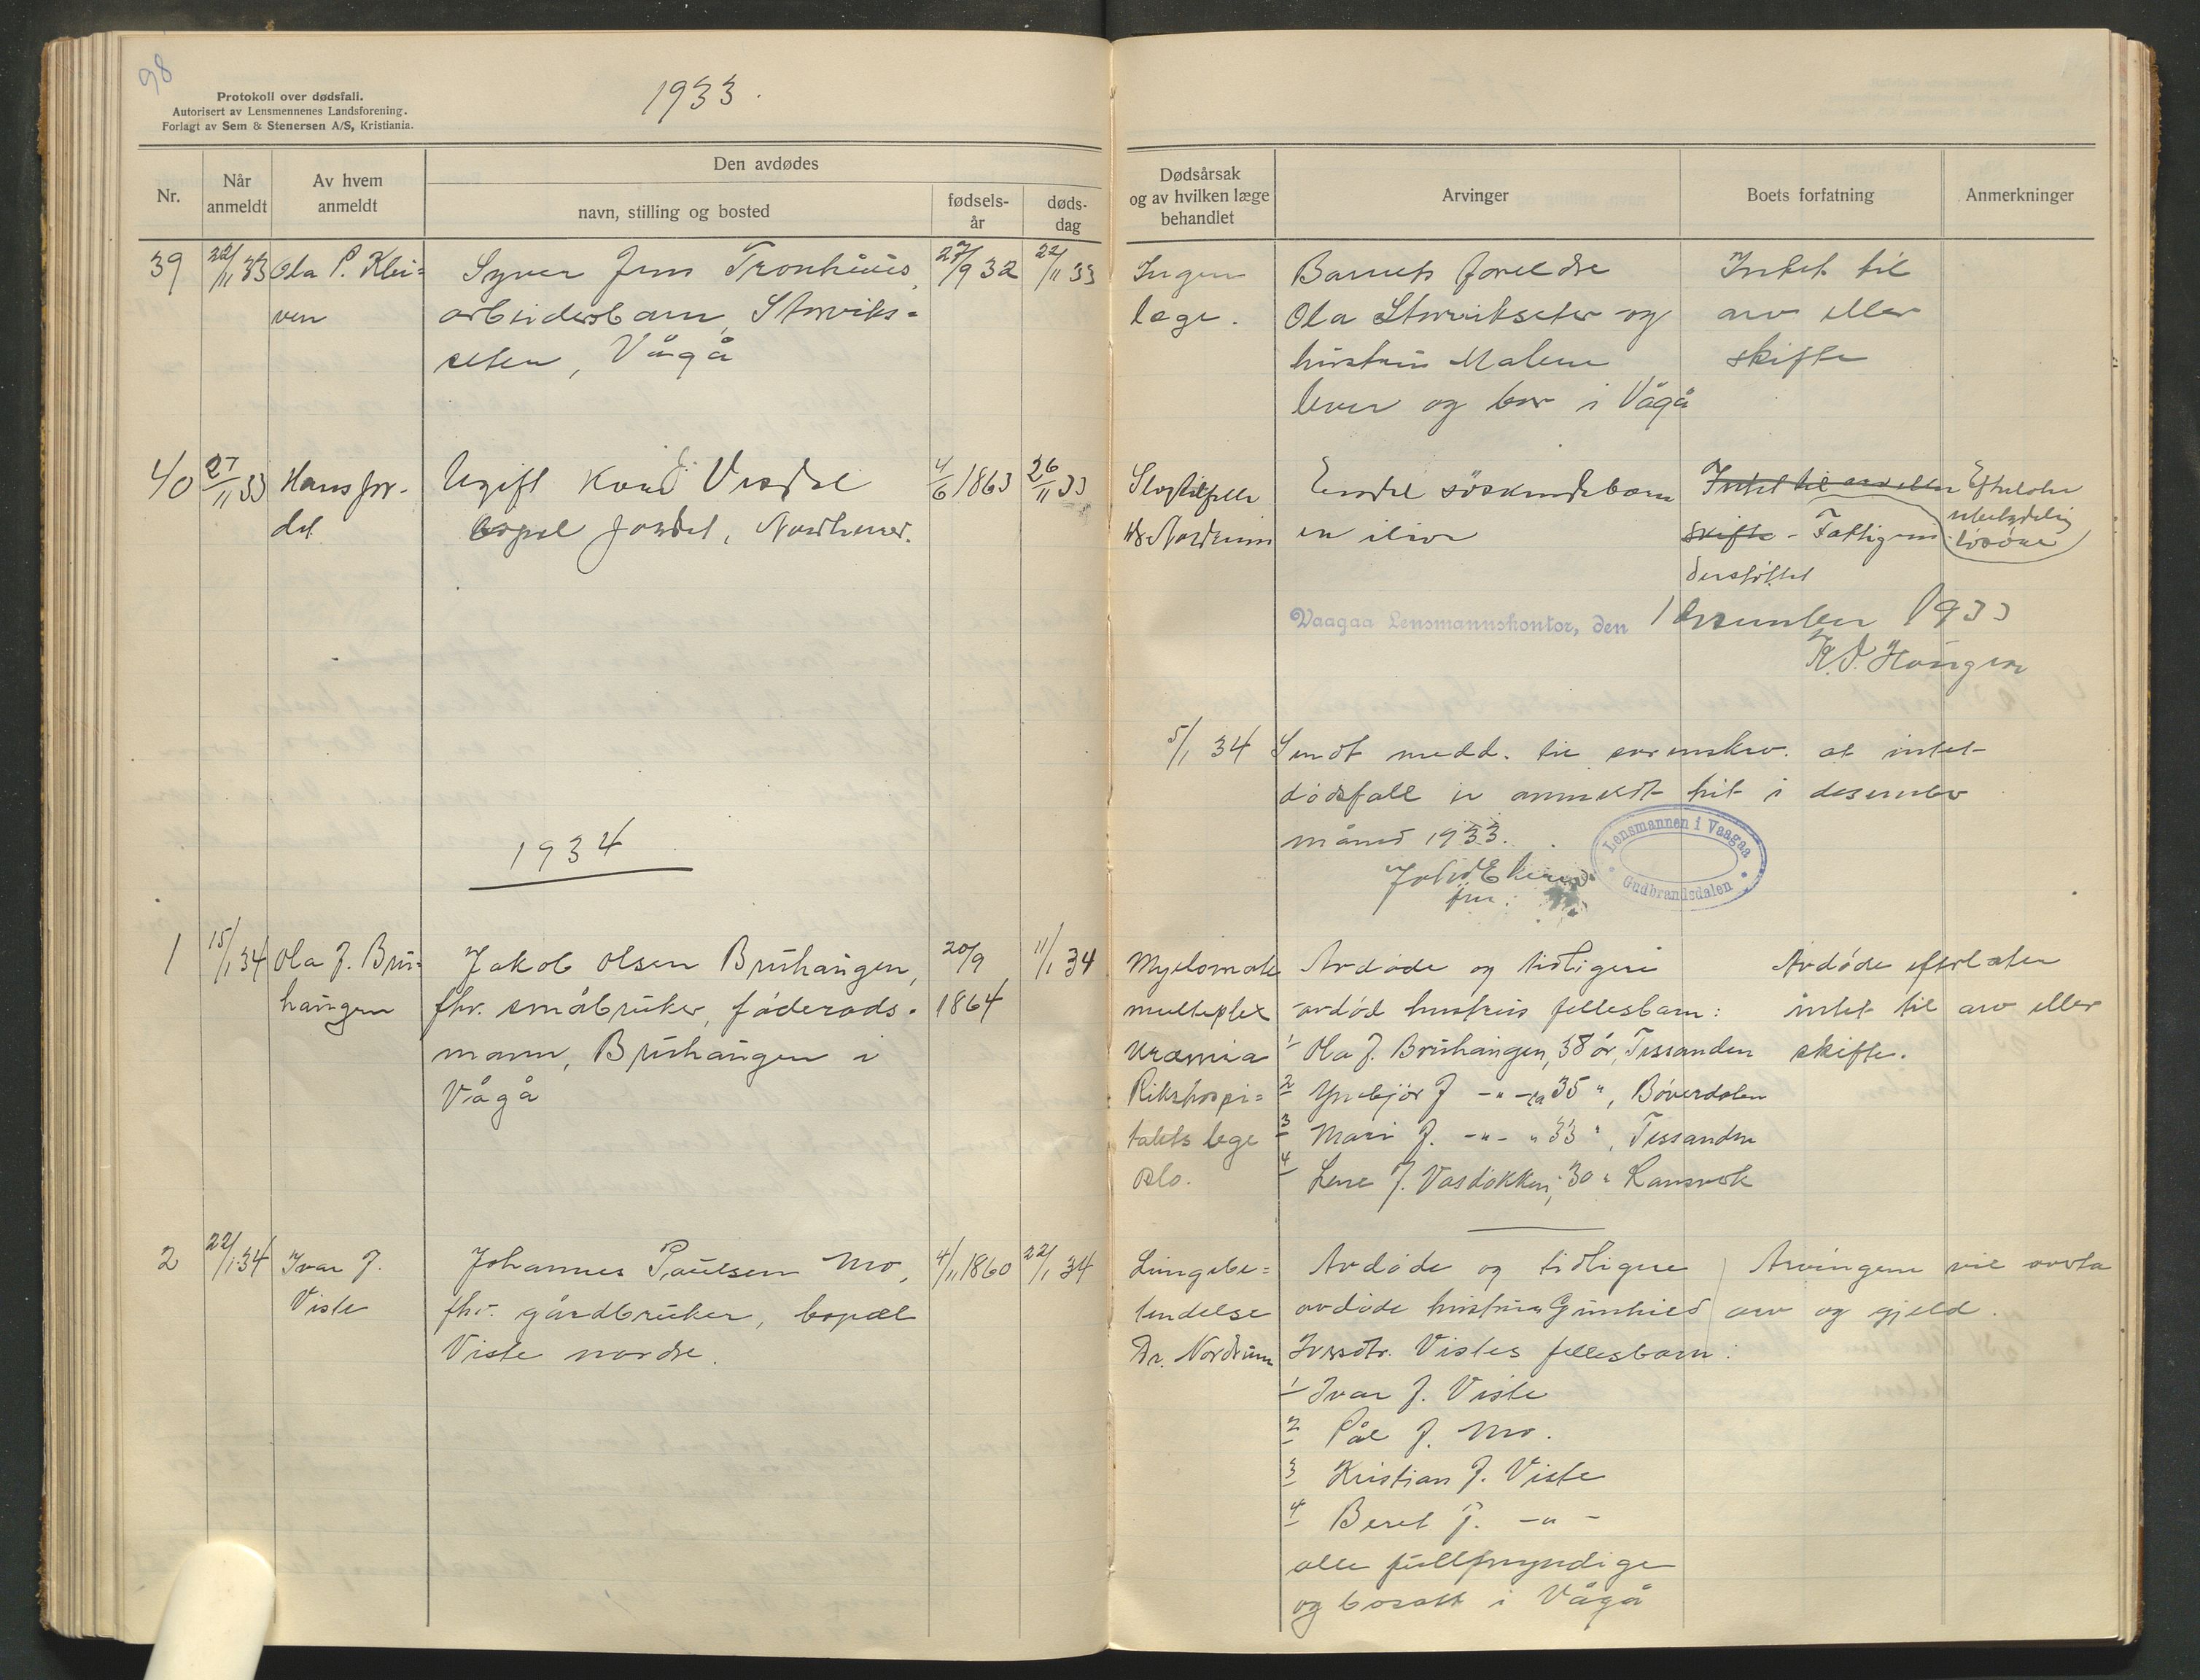 98
Protokoll over dødsfall.
Autorisert av Lensmennenes Landsforening.
Forlagt av Sem & Stenersen A/S, Kristiania.
1933.
Nr.
Når anmeldt
Av hvem anmeldt
Den avdødes
navn, stilling og bosted
fødsels-år
døds-dag
Dødsårsak og av hvilken læge behandlet
Arvinger
Boets forfatning
Anmerkninger
39
22/11 33
Ola P. Klei=
ven
Syver Jens Tronhuus,
arbeidersbarn, Storviks=
seten, Vågå
27/9 32
22/11 33
Ingen
læge.
Barnets foreldre
Ola Storvikseter og
hustru Malene
lever og bor i Vågå
Intet til
arv eller
skifte
40
27/11 33
Hans Jor-
det
Ugift
bopel Jordet, Nordherred.
4/6 1863
26/11 33
Slagtilfelle
Dr Nordrum
Endel söskendebarn
er ilive
Intet til arv eller
skifte - Fattigun
derstøttet
Efterlater
ubetydelig
løsøre
Vaagaa Lensmannskontor, den 1 desember 1933
Haugen
5/1 34 Sendt medd. til sorenskr. at intet
dødsfall er anmeldt hit i desember
måned 1933.
Lensmannen i Vaagaa
Gudbrandsdalen
1934
1
15/1 34
Ola J. Bru=
haugen
Jakob Olsen Bruhaugen,
fhv. småbruker, føderåds-
mann, Bruhaugen i
Vågå
20/9
1864
11/1 34
Myelomate
multeplex
Uræmia
Rikshospi=
talets lege
Oslo.
Avdøde og tidligere
avdød hustrus fellesbarn:
1 Ola J. Bruhaugen, 38 år, Tessanden
2 J -"- ca 35 ", Bøverdalen
3 Mari J. -"- " 33 ", Tessanden
4 Lene J. Vasdokken, 30 "
Avdøde efterlater
intet til arv eller
skifte.
2
22/1 34
Ivar J.
Viste
Johannes Paulsen Mo,
fhv. gårdbruker, bopæl
Viste nordre.
4/11 1860
22/1 34
Lungebe=
tendelse
Dr. Nordrum
Avdøde og tidligere
avdøde hustru Gunhild
Ivarsdtr. Vistes fellesbarn:
1 Ivar J. Viste
2 Pål J. Mo.
3 Kristian J. Viste
4 Beret J. -"-
alle fullmyndige
og bosatt i Vågå
Arvingene vil overta
arv og gjeld.